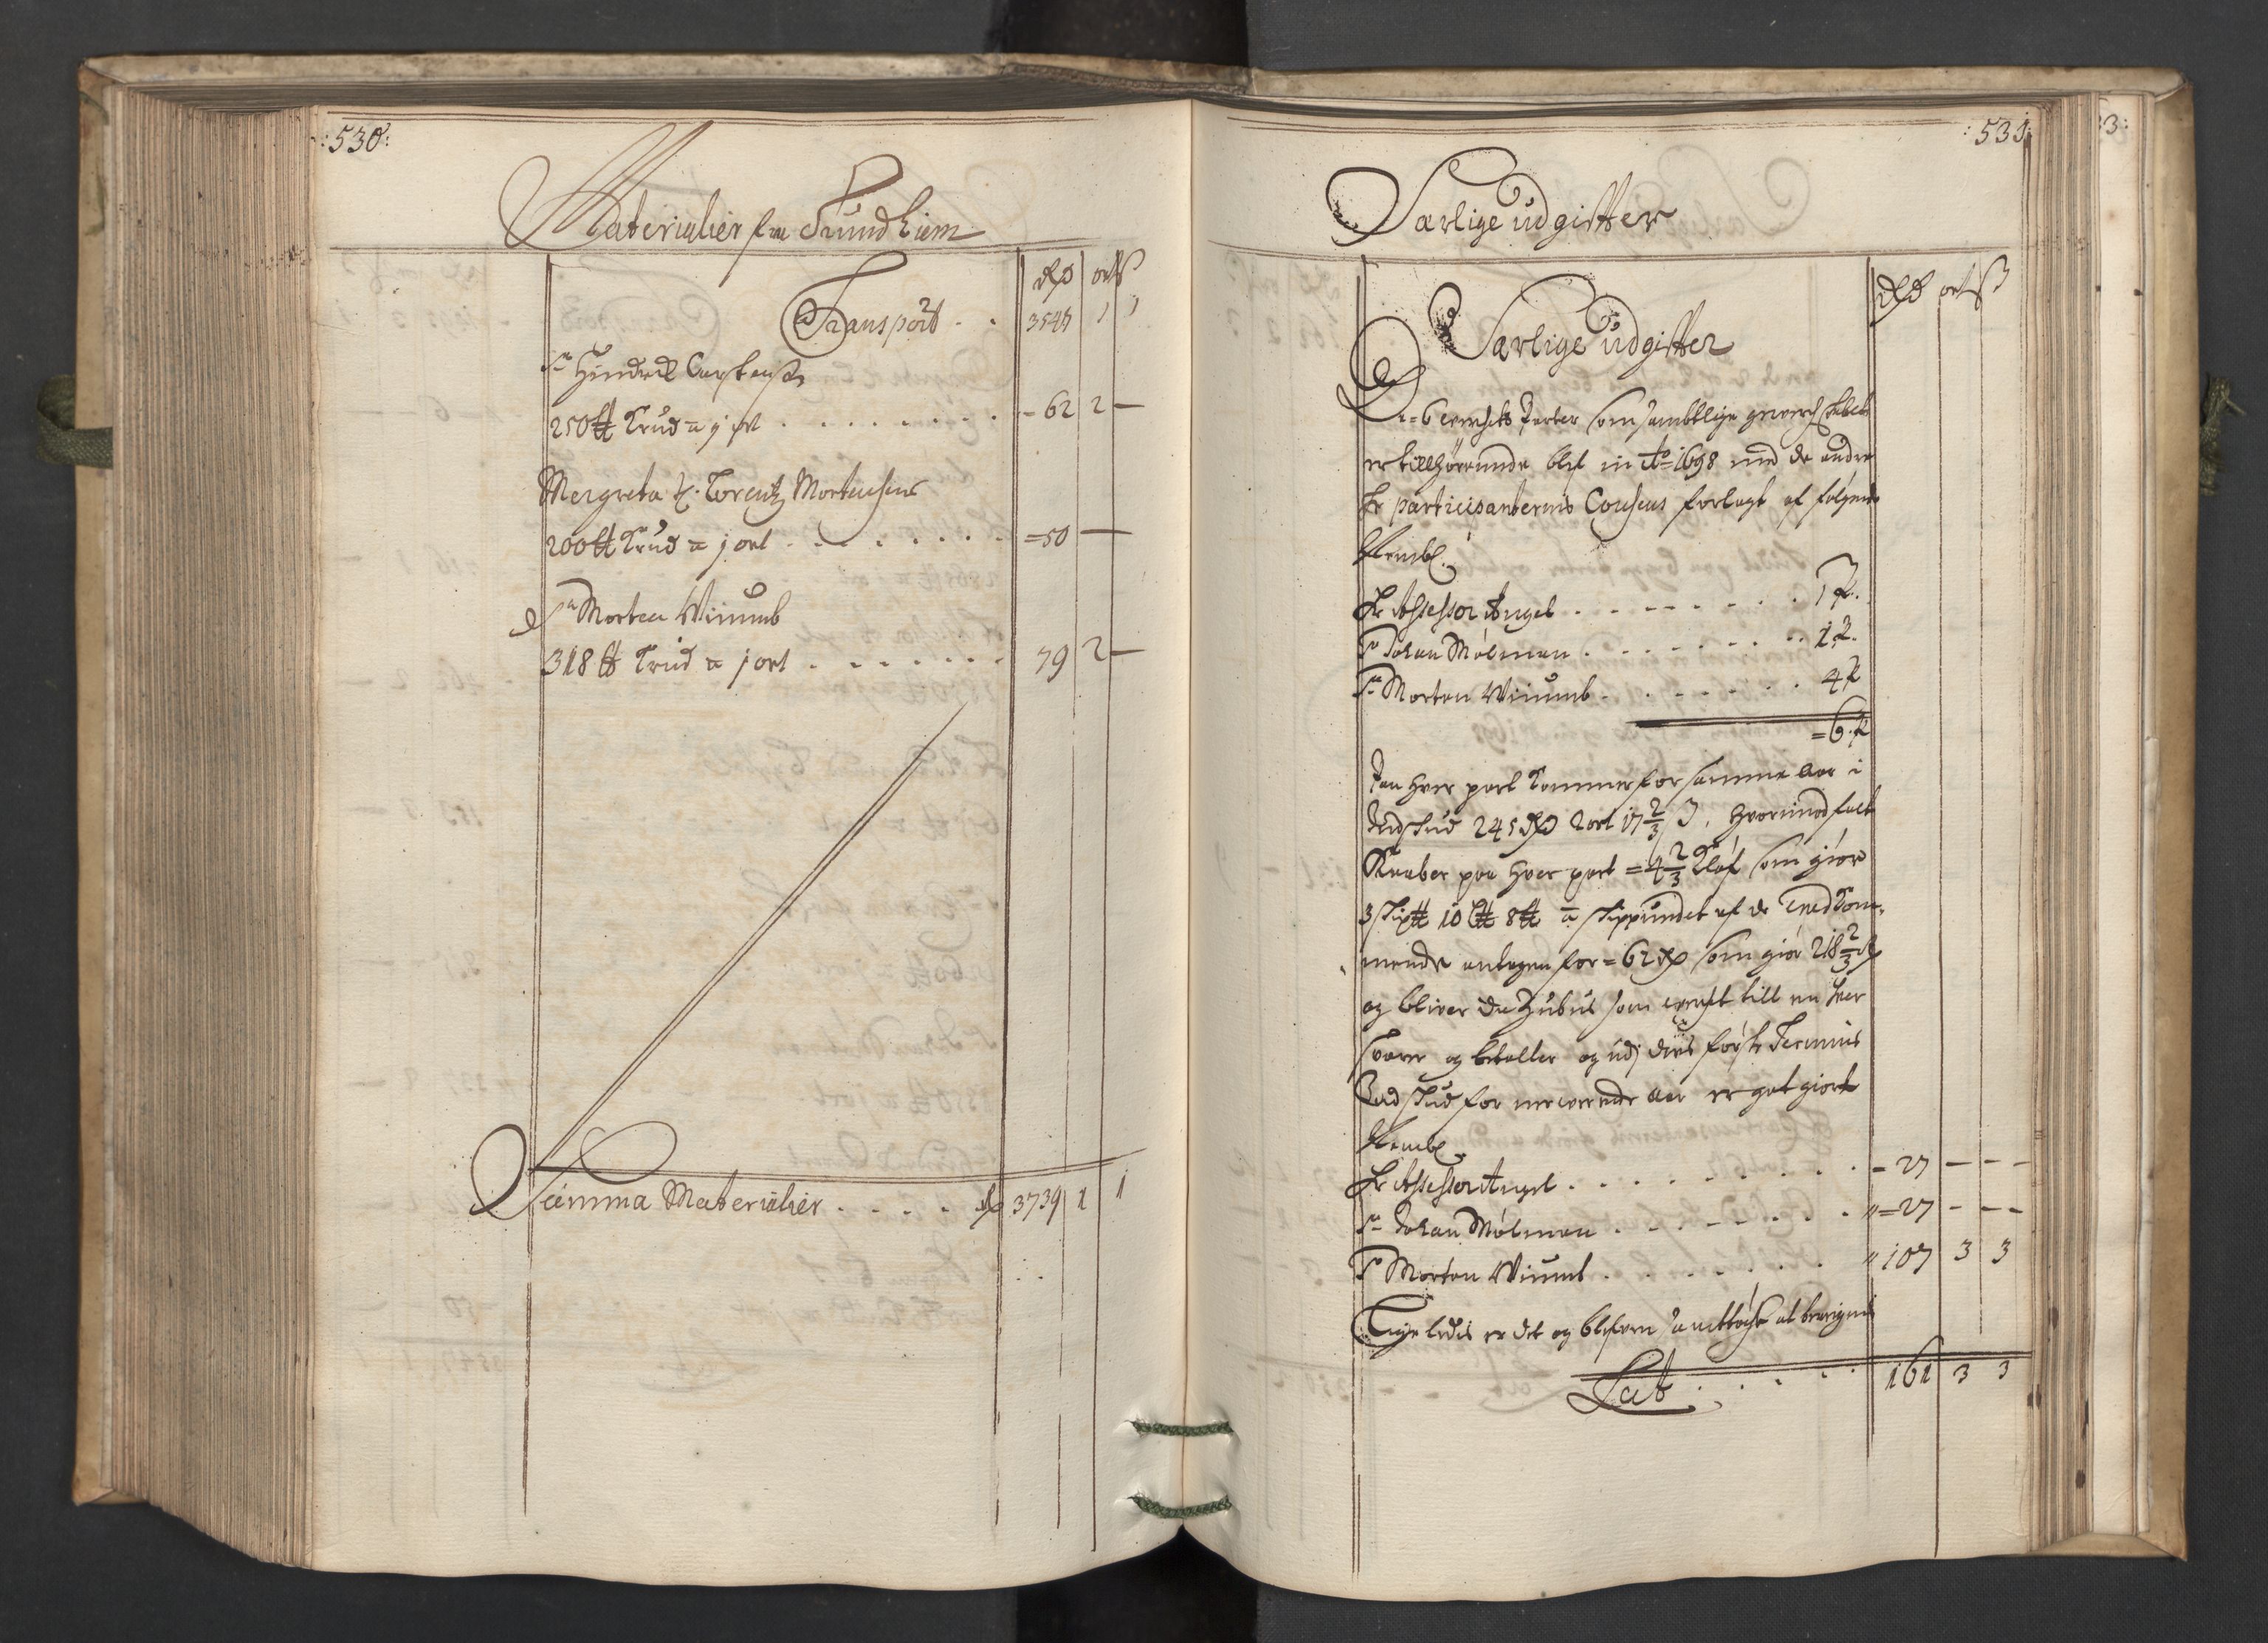 :530:
Materialier fra Trundhiem
Rdr ort ß
Transport . . 3547 1 1
Sr Hindrich Carstensen
250 ℔ Krud a 1 ort . . . . . . . . - 62 2 —
Margreta Sl. Lorentz Mortensens
200 ℔ Krud a j ort . . . . . . . . =50 —
Sr Morten Wiiumb
318 ℔ Krud a j ort . . . . . . . 79 2 —
Summa Materialier . . . . . Rdr 3739 1 1
:531:
Særlige udgifter
Rdr ort ß
Særlige udgifter
De 6 Parter som sambtlige
er tillhørende blef in Ao 1698 med de andre
Hr participanternis Consens forlagt af følgende
Nembl.
Hr Assessor Angel . . . . . . . . 1 p.
Sr Johan Mølman . . . . . . . . 1 p.
Sr Morten Wiiumb . . . . . . . 4 p
=6 p
Paa hver part kommer for samme aar i
Indskud 245 Rdr 2 ort 17 2/3 ß, hvorimod falt
Kaaber paa hver part =4 2/3 som giør
3 Skip℔ 10 L℔ 8 ℔ a Skippundet af de
mende antagen for =62 Rdr som giør 218 2/3 Rdr
og bliver da Zubus som till en hver
svarer og betaller og udj første Termins
Indskud for nerverende aar er got giort
Nembl.
Hr Assessor Angel . . . . . . . . - 27 — — —
Sr Johan Mølman . . . . . . . . " =27 - — —
Sr Morten Wiiumb . . . . . . . " 107 3 3
Lige ledis er det og blefven samtøcht at
Lat . . . . . 161 3 3
3: